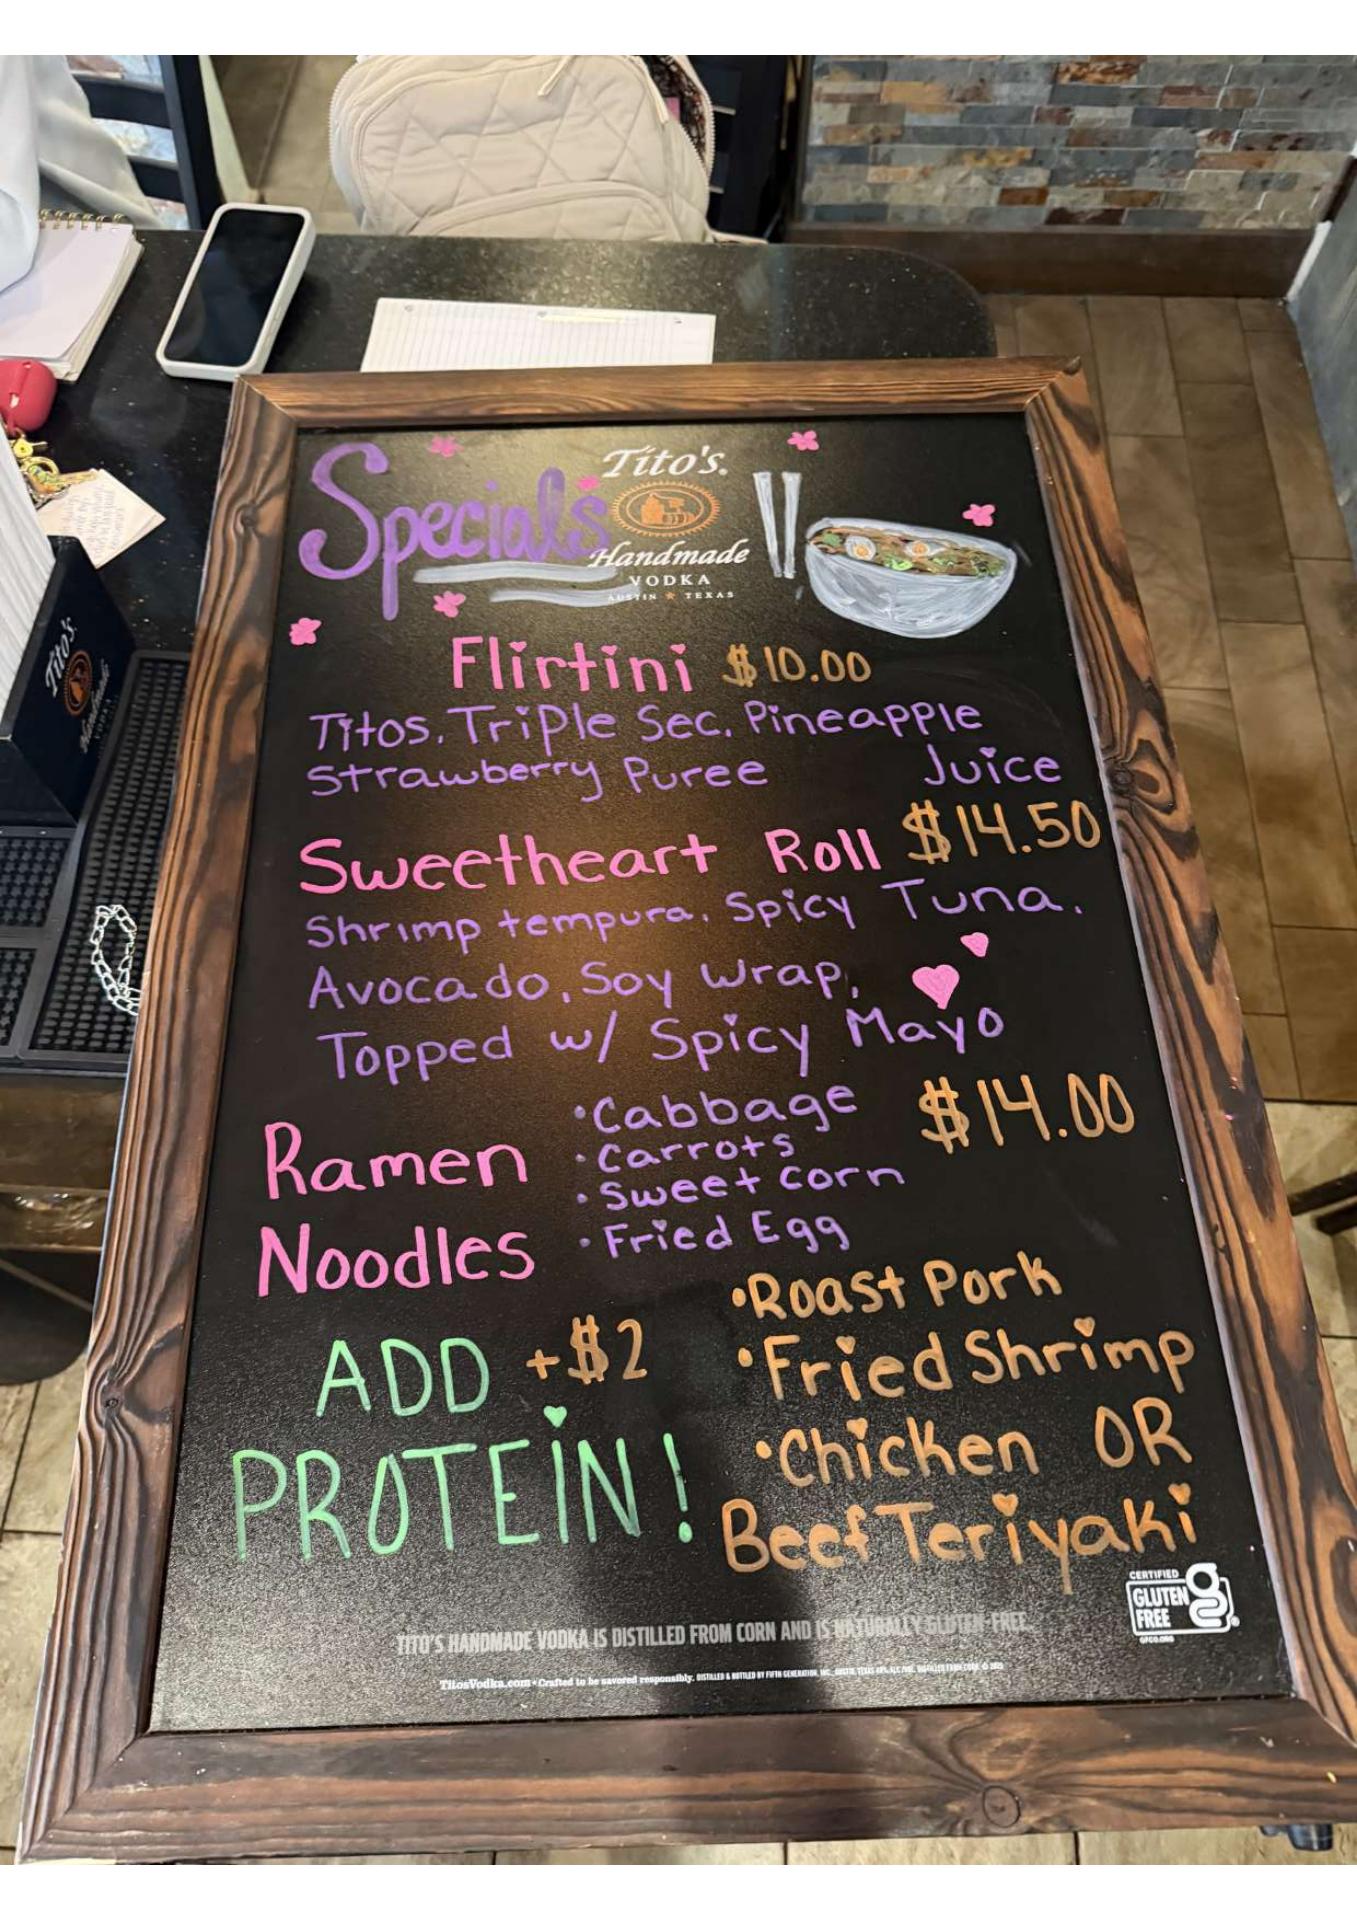 Specials
Tito's
Handmade
VODKA
AUSTIN ★ TEXAS
Flirtini $10.00
Titos, Triple Sec, Pineapple
Strawberry Puree Juice
Sweetheart Roll $14.50
Shrimp tempura, Spicy Tuna,
Avocado, Soy wrap,
Topped w/ Spicy Mayo
Ramen
Noodles
•Cabbage
•Carrots
•Sweet corn
•Fried Egg
$14.00
ADD +$2
PROTEIN!
•Roast Pork
•Fried Shrimp
•Chicken OR
Beef Teriyaki
CERTIFIED
GLUTEN
FREE
GFCO.ORG
TITO'S HANDMADE VODKA IS DISTILLED FROM CORN AND IS NATURALLY GLUTEN-FREE.
TitosVodka.com • Crafted to be savored responsibly. DISTILLED & BOTTLED BY FIFTH GENERATION, INC.
Tito's
Handmade